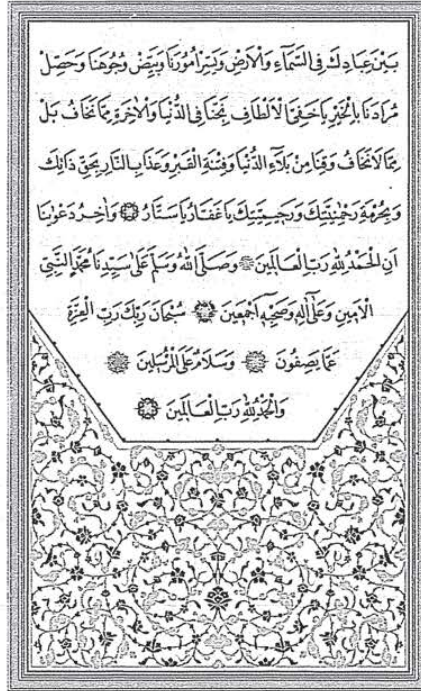 بَيْنَ عِبَادِكَ فِى السَّمَآءِ وَالْاَرْضِ وَيَسِّرْ اُمُورَنَا وَبَيِّضْ وُجُوهَنَا وَحَصِّلْ
مُرَادَنَا بِالْخَيْرِ يَا خَفِىَّ الْاَلْطَافِ نَجِّنَا فِى الدُّنْيَا وَالْاٰخِرَةِ مِمَّا نَخَافُ بَلْ
مِمَّا لَا نَخَافُ وَقِنَا مِنْ بَلَآءِ الدُّنْيَا وَفِتْنَةِ الْقَبْرِ وَعَذَابِ النَّارِ بِحَقِّ ذَاتِكَ
وَبِحُرْمَةِ رَحْمٰنِيَّتِكَ وَرَحِيمِيَّتِكَ يَا غَفَّارُ يَا سَتَّارُ وَاٰخِرُ دَعْوٰينَا
اَنِ الْحَمْدُ لِلّٰهِ رَبِّ الْعَالَمِينَ وَصَلَّى اللّٰهُ وَسَلَّمَ عَلٰى سَيِّدِنَا مُحَمَّدٍ النَّبِىِّ
الْاَمِينِ وَعَلٰى اٰلِهِ وَصَحْبِهِ اَجْمَعِينَ سُبْحَانَ رَبِّكَ رَبِّ الْعِزَّةِ
عَمَّا يَصِفُونَ وَسَلَامٌ عَلَى الْمُرْسَلِينَ
وَالْحَمْدُ لِلّٰهِ رَبِّ الْعَالَمِينَ